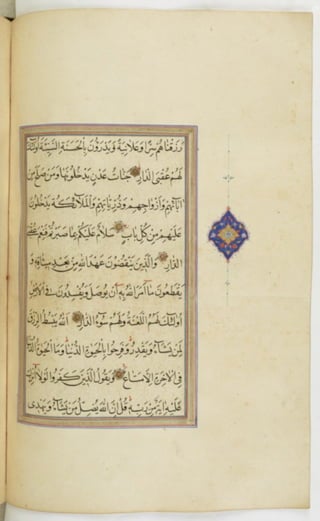 رزقناهم سرا وعلانية ويدرؤن بالحسنة السيئة اولئك
لهم عقبى الدار جنات عدن يدخلونها ومن صلح من
آبائهم وازواجهم وذرياتهم والملائكة يدخلون
عليهم من كل باب سلام عليكم بما صبرتم فنعم عقبى
الدار والذين ينقضون عهد الله من بعد ميثاقه و
يقطعون ما امر الله به ان يوصل ويفسدون في الارض
اولئك لهم اللعنة ولهم سوء الدار الله يبسط الرزق
لمن يشاء ويقدر وفرحوا بالحيوة الدنيا وما الحيوة الدنيا
في الآخرة الا متاع ويقول الذين كفروا لولا انزل
عليه آية من ربه قل ان الله يضل من يشاء ويهدى